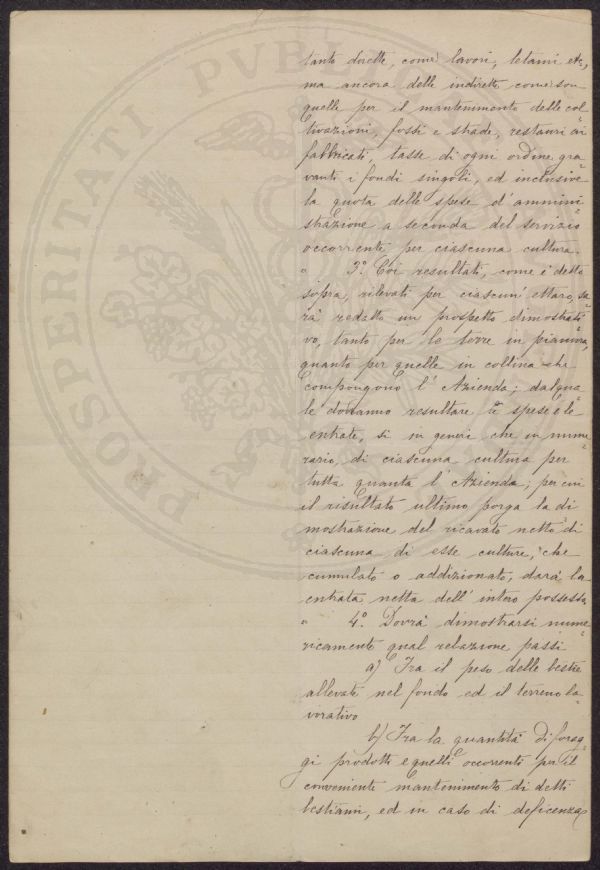 tanto dirette, come lavori, letami etc,
ma ancora delle indirette come son
quelle per il mantenimento delle col
tivazioni, fossi e strade, restauri ai
fabbricati, tasse di ogni ordine gra=
vanti i fondi singoli, ed inclusive
la quota delle spese d'ammini
strazione a seconda del servizio
occorrente per ciascuna cultura.
" 3.° Coi resultati, come è detto
sopra, rilevati per ciascun' ettaro, sa=
rà redatto un prospetto dimostrati=
vo, tanto per le terre in pianura,
quanto per quelle in collina che
compongono l'Azienda; dal qua=
le dovranno resultare le spese e le
entrate, sì in generi che in nume=
rario, di ciascuna cultura per
tutta quanta l'Azienda; per cui
il risultato ultimo porga la di
mostrazione del ricavato netto di
ciascuna di esse culture, che
cumulato o addizionato, darà la
entrata netta dell'intero possesso.
" 4.° Dovrà dimostrarsi nume=
ricamente qual relazione passi
a) Fra il peso delle bestie
allevate nel fondo ed il terreno la=
vorativo
b) Fra la quantità di forag=
gi prodotti e quelli occorrenti per il
conveniente mantenimento di detti
bestiami, ed in caso di deficenza,
PROSPERITATI PVBLIC